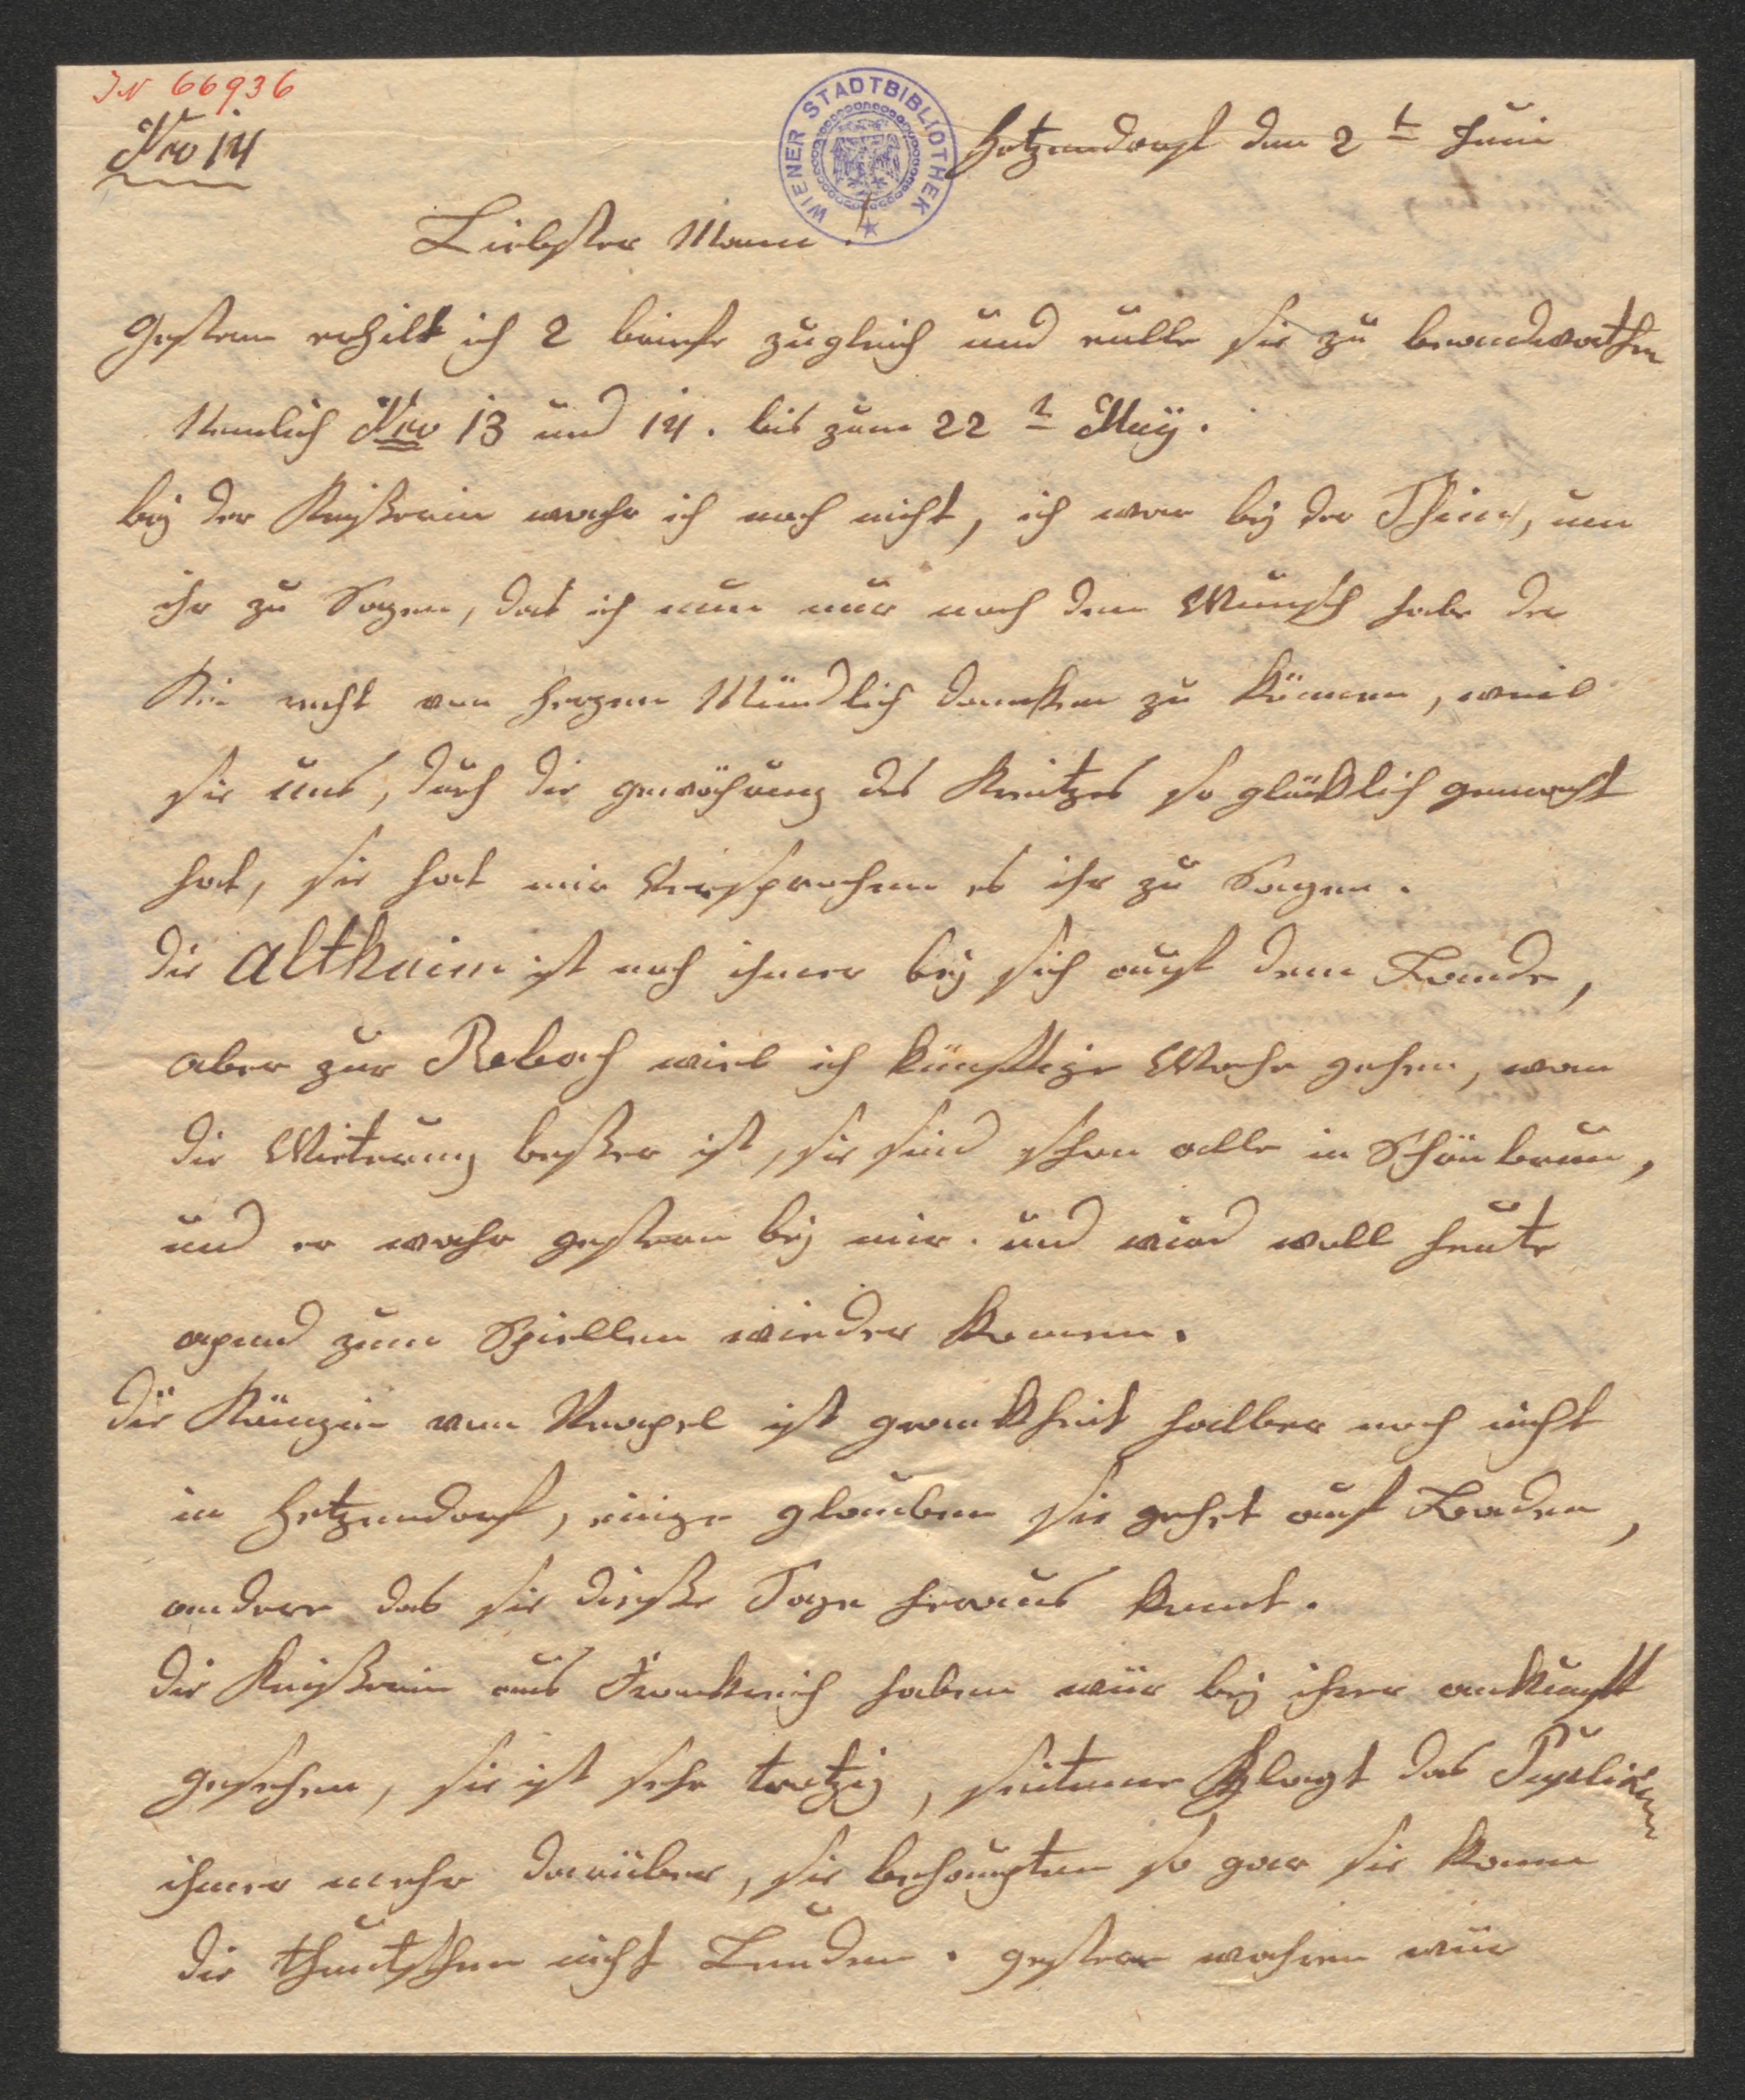 JN 66936
Nro 14
WIENER STADTBIBLIOTHEK
Hetzendorf den 2t Juni
Liebster Mann!
Gestern erhilt ich 2 briefe zugleich und eulle sie zu beandworthen
Nemlich Nro 13 und 14. bis zum 22t May.
bey der Keißerin wahr ich noch nicht, ich war bey der um
ihr zu Sagen, das ich nun nur noch den Wunsch habe der
Kei recht von herzen Mündlich dancken zu können, weil
sie uns, durch die gewöhrung des Kreitzes so glücklich gemacht
hat, sie hat mir Versprochen es ihr zu Sagen.
die althaim ist noch ihmer bey sich auf dem Lande,
aber zur Rebach wiel ich künftige Woche gehen, wan
die Wieterung beßer ist, sie sind schon alle in Schönbrun,
und er wahr gestern bey mir. und wird woll heute
apend zum Spiellen wieder komen.
die Könzin von Neapel ist grankheit halber noch nicht
in Hetzendorf, einge glauben sie gehet auf Baden,
andere das sie dieße Tage heraus komt.
die Keißerin aus Frankreich haben wür bey ihrer ankunft
gesehen, sie ist sehr trotzig, seitmer klagt das Puplikum
ihmer mehr darüber, sie behaupten so gar sie kann
die theutschen nicht Leuden. gestern wahren wür